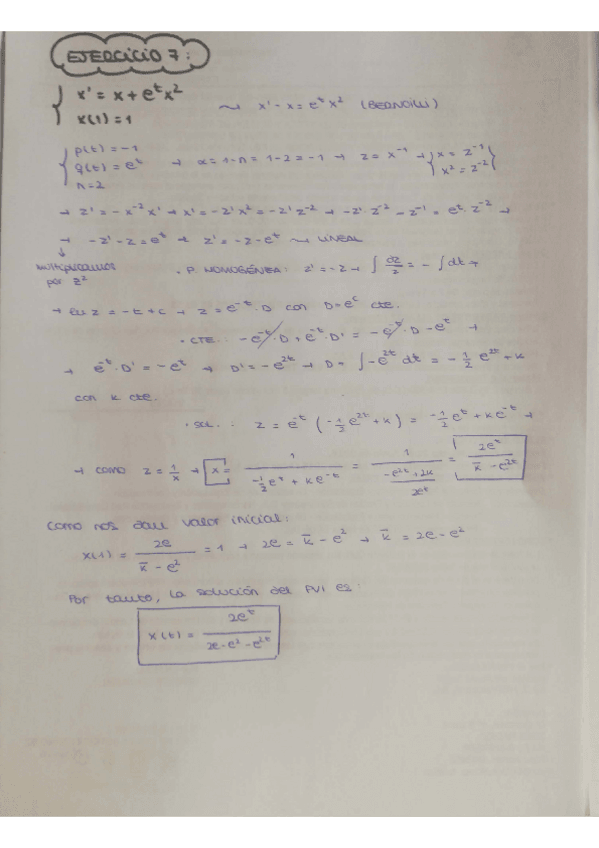 EJERCICIO 7:
{ x' = x + e^t x^2 ⇝ x' - x = e^t x^2 (BERNOILLI)
x(1) = 1
{ p(t) = -1
q(t) = e^t → α = 1-n = 1-2 = -1 → z = x^-1 → { x = z^-1
n = 2 x^2 = z^-2 }
→ z' = -x^-2 x' → x' = -z' x^2 = -z' z^-2 → -z' z^-2 - z^-1 = e^t · z^-2 →
→ -z' - z = e^t → z' = -z - e^t ⇝ LINEAL
↓
multiplicamos por z^2
· P. HOMOGÉNEA: z' = -z → ∫ dz/z = - ∫ dt →
→ ln z = -t + c → z = e^-t · D con D = e^c cte.
· CTE.: -e^-t · D + e^-t · D' = -e^-t · D - e^t →
→ e^-t · D' = -e^t → D' = -e^2t → D = ∫ -e^2t dt = -1/2 e^2t + k
con k cte.
· SOL.: z = e^-t (-1/2 e^2t + k) = -1/2 e^t + k e^-t →
→ como z = 1/x → x = 1/(-1/2 e^t + k e^-t) = 1/((-e^2t + 2k)/(2e^t)) = 2e^t/(k̄ - e^2t)
Como nos dan valor inicial:
x(1) = 2e/(k̄ - e^2) = 1 → 2e = k̄ - e^2 → k̄ = 2e - e^2
Por tanto, la solución del PVI es:
x(t) = 2e^t/(2e - e^2 - e^2t)